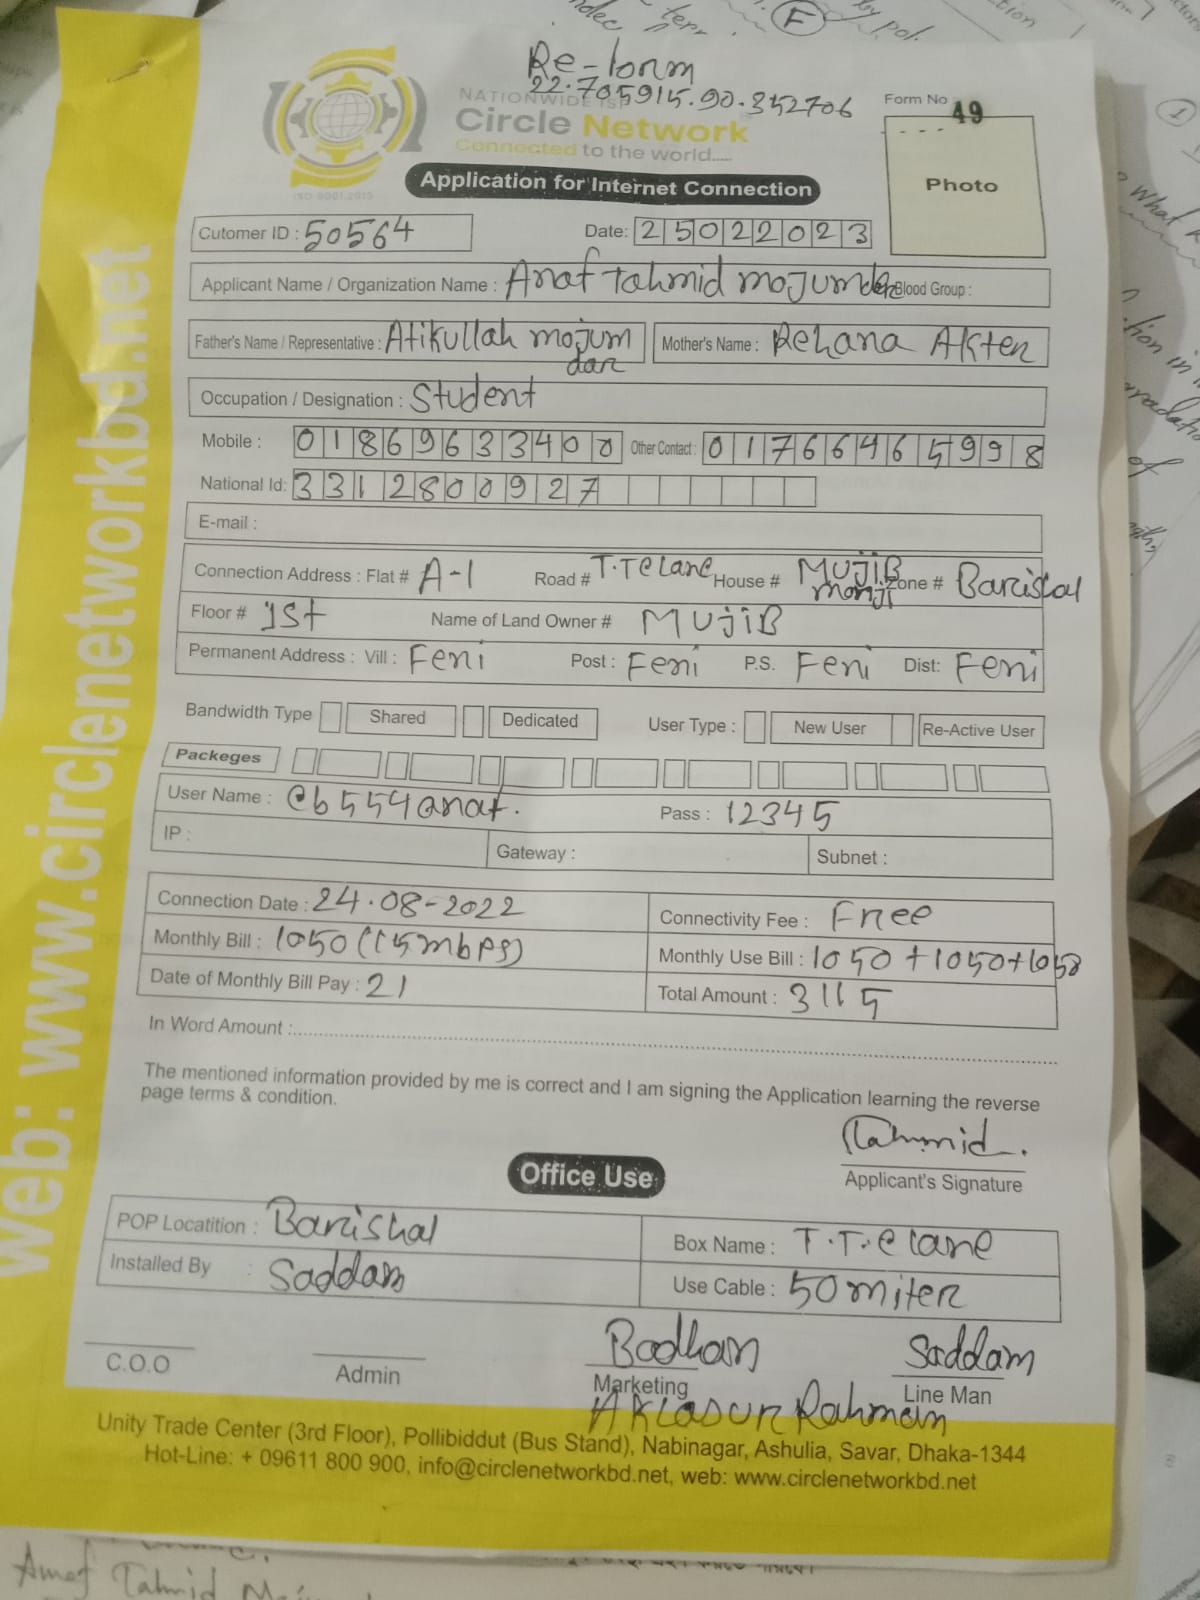 Re-form
22.705915.90.352706
NATIONWIDE ISP
Circle Network
Connected to the world.....
ISO 9001:2015
Form No 49
Photo
Application for Internet Connection
Cutomer ID : 50564
Date: 25022023
Applicant Name / Organization Name : Anaf Tahmid Mojumder Blood Group :
Father's Name / Representative : Atikullah mojum dar Mother's Name : Rehana Akter
Occupation / Designation : Student
Mobile : 01869633400 Other Contact : 01766465998
National Id: 3312800927
E-mail :
Connection Address : Flat # A-1 Road # T.T.C lane House # MUJIB monji Zone # Barishal
Floor # 1st Name of Land Owner # MUJIB
Permanent Address : Vill : Feni Post : Feni P.S. Feni Dist: Feni
Bandwidth Type Shared Dedicated User Type : New User Re-Active User
Packeges
User Name : Pass : 12345
IP : Gateway : Subnet :
Connection Date : 24.08-2022 Connectivity Fee : Free
Monthly Bill : 1050 (15mbps) Monthly Use Bill : 1050+1050+
Date of Monthly Bill Pay : 21 Total Amount : 3115
In Word Amount :
The mentioned information provided by me is correct and I am signing the Application learning the reverse
page terms & condition.
Tahmid.
Applicant's Signature
Office Use
POP Locatition : Barishal Box Name : T.T.C lane
Installed By : Saddam Use Cable : 50 miter
Saddam
C.O.O Admin Marketing Line Man
Rahman
Unity Trade Center (3rd Floor), Pollibiddut (Bus Stand), Nabinagar, Ashulia, Savar, Dhaka-1344
Hot-Line: + 09611 800 900, info@circlenetworkbd.net, web: www.circlenetworkbd.net
web: www.circlenetworkbd.net
Tahmid